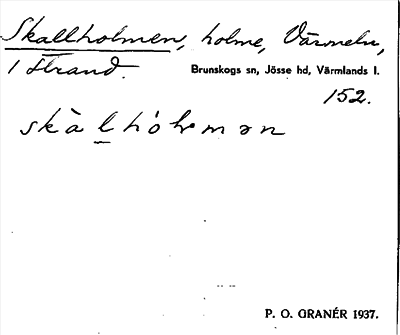 Skallholmen, holme, Värmeln,
1 Strand.
Brunskogs sn, Jösse hd, Värmlands l.
152.
skàlhólmən
P. O. GRANÉR 1937.